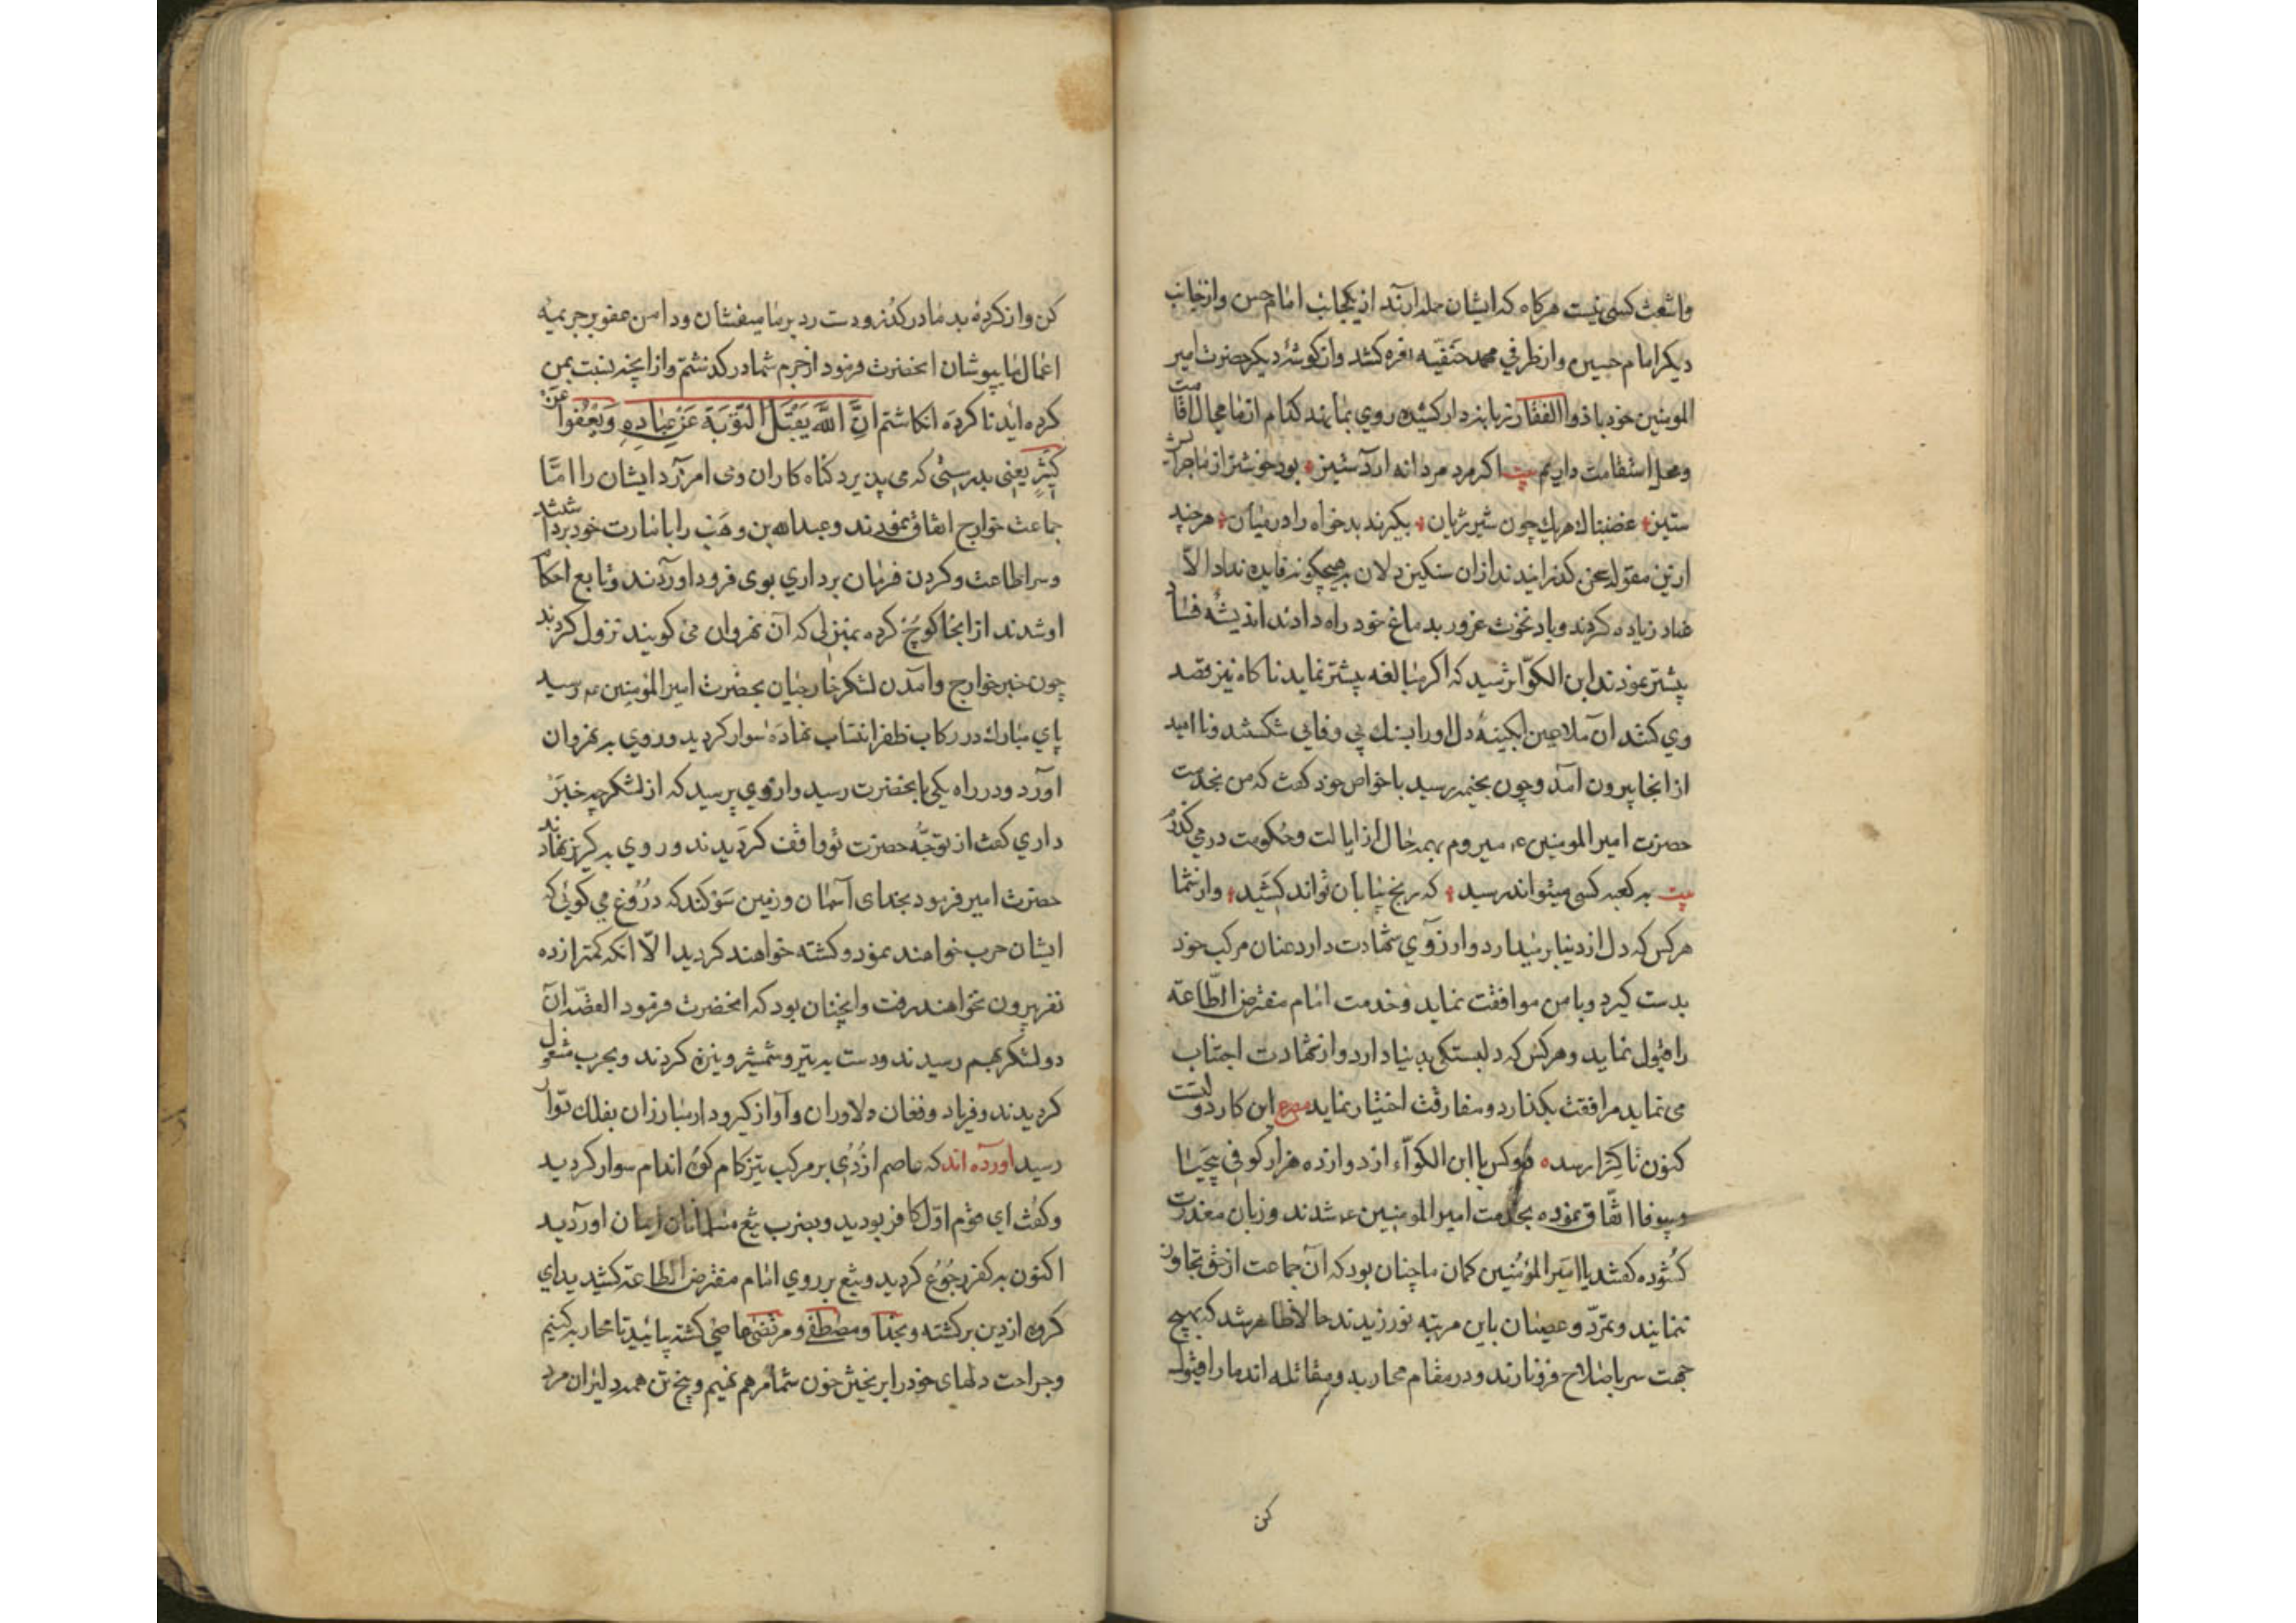 واشعث کسی نیست هرکاه که ایشان حمله آرند از یکجانب امام حسن و از جانب
دیکر امام حسین و از طرفی محمد حنفیّه نعره کشد و از کوشهٔ دیکر حضرت امیر
المومنین خود با ذوالفقار زبانه دار کشیده روی بما نهد کدام از ما مجال اقامت
و محل استقامت داریم بیت اکر مرد مردانه آرد ستیز بود خوشتر از ماجرا
ستیز غضبناك هریك چون شیر ژیان بکیرند بدخواه را در میان هرچند
ازین مقوله سخن کذرانیدند از ان سنکین دلان هیچکونه فایده نداد الّا
عناد زیاده کردند و باد نخوت غرور بدماغ خود راه دادند اندیشه فساد
پیشتر نمودند ابن الکوّا ترسید که اکر مبالغه پیشتر نماید ناکاه نیز قصد
وی کنند ان ملاعین ابکینهٔ دل او را بسنك بی وفایی شکستند و ناامید
از انجا بیرون آمد و چون بخیمه رسید با خواص خود کفت که من بخدمت
حضرت امیر المومنین ع میروم بهمه حال از ایالت و حکومت در می کذرم
بیت به کعبه کسی میتواند رسید که رنج بیابان تواند کشید و از شما
هرکس که دل از دنیا بر میدارد و ارزوی شهادت دارد عنان مرکب خود
بدست کیرد و با من موافقت نماید و خدمت امام مفترض الطّاعة
را قبول نماید و هرکس که دلبستکی بدنیا دارد و از شهادت اجتناب
می نماید مرافقت بکذارد و مفارقت اختیار نماید مصرع این کار دولتست
کنون تا کرا رسد دو کس با ابن الکوّاء از دوازده هزار کوفی بیحیا
و بیوفا اتّفاق نموده بخدمت امیر المومنین ع شدند و زبان معذرت
کشوده کفتند یا امیر المؤمنین کمان ما چنان بود که آن جماعت از حق تجاوز
ننمایند و تمرّد و عصیان باین مرتبه نورزیدند حالا ظاهر شد که بهیچ
جهت سر باصلاح فرو نارند و در مقام محاربه و مقاتله اند ما را قبول
کن
کن و از کردهٔ بد ما درکذر و دست رد بر ما میفشان و دامن عفو بر جریمه
اعمال ما بپوشان انحضرت فرمود از جرم شما درکذشتم و از انچه نسبت بمن
کرده اید ناکرده انکاشتم انّ اللّه یقبل التّوبة عن عباده و یعفوا عن
کثیر یعنی بدرستی که می پذیرد کناه کاران و می آمرزد ایشان را امّا
جماعت خوارج اتفاق نمودند و عبدالله بن وهب را بامارت خود برداشتند
و سر اطاعت و کردن فرمان برداری بوی فرود اوردند و تابع احکام
او شدند از انجا کوچ کرده بمنزلی که آن نهروان می کویند نزول کردند
چون خبر خوارج و آمدن لشکر خارجیان بحضرت امیر المؤمنین ع رسید
پای مبارك در رکاب ظفر انتساب نهاده سوار کردید و روی به نهروان
آورد و در راه یکی بانحضرت رسید و از وی پرسید که از لشکر چه خبر
داری کفت از توجّه حضرت تو واقف کردیدند و روی به کریز نهادند
حضرت امیر فرمود بخدای آسمان و زمین سوکند که دروغ می کوئی که
ایشان حرب خواهند نمود و کشته خواهند کردید الّا انکه کمتر از ده
نفر بیرون نخواهند رفت و انچنان بود که انحضرت فرمود القصّه ان
دو لشکر بهم رسیدند و دست به تیر و شمشیر و نیزه کردند و بحرب مشغول
کردیدند و فریاد و فغان دلاوران و آواز کیر و دار مبارزان بفلك دوار
رسید اورده اند که عاصم ازدی بر مرکب تیزکام کوه اندام سوار کردید
و کفت ای قوم اوّل کافر بودید و بضرب تیغ مسلمانان ایمان اوردید
اکنون به کفر رجوع کردید و تیغ بر روی امام مفترض الطاعة کشیدید ای
کروه از دین برکشته و بخدا و مصطفی و مرتضی عاصی کشته بیائید تا محاربه کنیم
و جراحت دلهای خود را بر بختن خون شما مرهم نهیم و پنج تن همه دلیران مرد